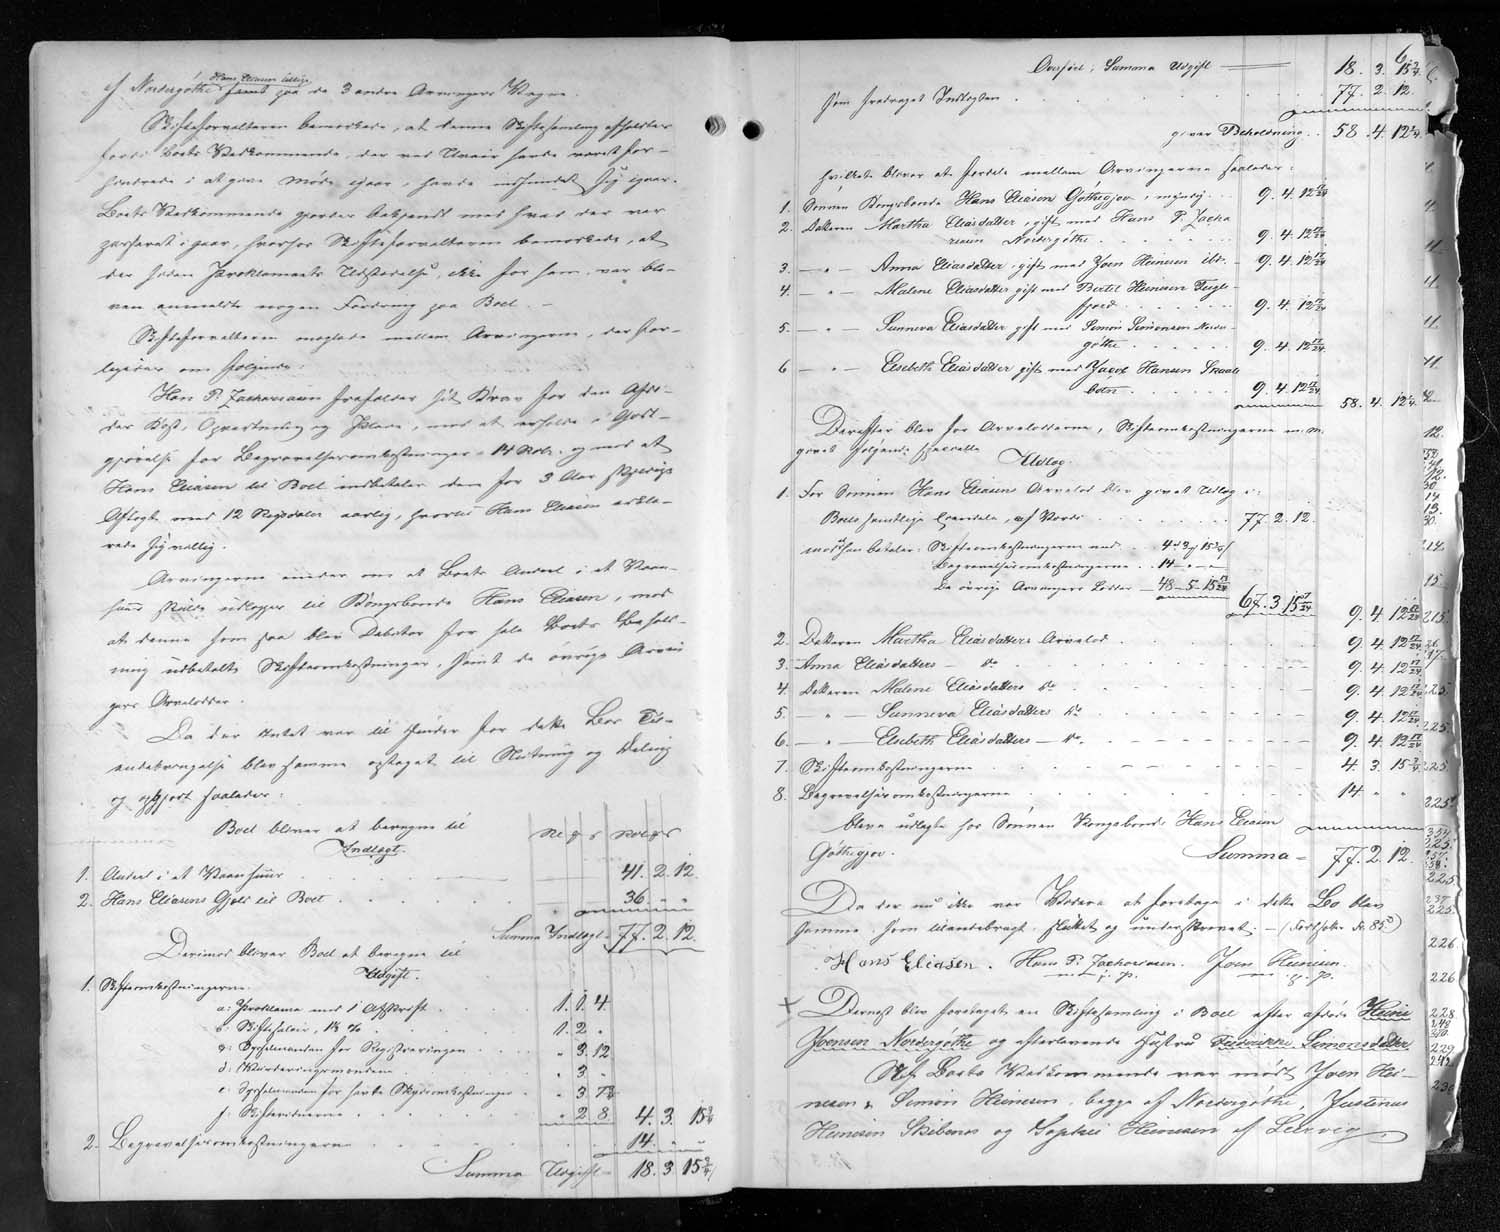 Hans Eliasen tillige
af Nordergöthe samt paa de 3 andre Arvingers Vegne.
Skifteforvalteren bemærkede, at denne Skiftesamling afholdtes
fordi Boets Vedkommende, der ved Uveir havde været for-
hindrede i at give Møde igaar, havde indfundet sig igaar.
Boets Vedkommende gjordes bekjendt med hvad der var
passeret igaar, hvorfor Skifteforvalteren bemærkede, at
der siden Proklamaets Udstedelse, ikke for ham, var ble-
ven anmeldte nogen Fordring paa Boet. -
Skifteforvalteren mæglede mellem Arvingerne, der for-
ligedes om følgende:
Hans P. Zachariasen frafalder sit Krav for den Afdø-
des Kost, Opvartning og Pleie, mod at erholde i Godt-
gjørelse for Begravelsesomkostninger 14 Rdl. og mod at
Hans Eliasen til Boet indbetaler den for 3 Aar skyldige
Aftægt med 12 Rigsdaler aarlig, hvortil Hans Eliasen erklæ-
rede sig villig.
Arvingerne enedes om at Boets Andeel i et Vaan-
huus skulde udlægges til Kongsbonde Hans Eliasen, mod
at denne som saa blev Debitor for hele Boets Behold-
ning udbetalte Skifteomkostninger, samt de øvrige Arvin
gers Arvelodder.
Da der Intet var til Hinder for dette Bos Til-
endebringelse blev samme optaget til Slutning og Deling
og opgjort saaledes:
Boet bliver at beregne til
Indtægt.
1. Andeel i et Vaanhuus . . . 41. 2. 12.
2. Hans Eliasens Gjæld til Boet . . . 36. " "
Summa Indtægt - 77. 2. 12.
Derimod bliver Boet at beregne til
Udgift.
1. Skifteomkostningerne
a: Proklama med 1 Afskrift . . . 1. 1. 4.
b: Skiftesalair, 1⅔ % . . 1. 2. "
c: Sysselmanden for Registreringen . . . " 3. 12
d: Vurderingsmændene . . . " 3. "
e: Sysselmanden for havte Skydsomkostninger . " 3. 7¾
f: Skiftevidnerne . . . " 2. 8. 4. 3. 15¾
2. Begravelsesomkostningerne . . . 14. " "
Summa Udgift - 18. 3. 15¾
6.
Overført: Summa Udgift 18. 3. 15¾
som fradraget Indtægten . . . 77. 2. 12.
giver Beholdning . . 58. 4. 12¼
hvilket bliver at fordele mellem Arvingerne saaledes:
1. Sønnen Kongsbonde Hans Eliasen Göthegjov, myndig . . 9. 4. 12 17/24
2. Datteren Martha Eliasdatter, gift med Hans P. Zacha
riasen Nordergöthe . . . 9. 4. 12 17/24
3. — " — Anna Eliasdatter, gift med Joen Heinesen ibd. - 9. 4. 12 17/24
4. — " — Malene Eliasdatter gift med Bertel Heinesen Fugle-
fjord . . . 9. 4. 12 17/24
5. — " — Sunneva Eliasdatter gift med Simon Simonsen Norder-
göthe . . . 9. 4. 12 17/24
6 — " — Elsebeth Eliasdatter gift med Jacob Hansen Skaale
botn . . . 9. 4. 12 17/24
58. 4. 12¼
Derefter blev for Arvelodderne, Skifteomkostningerne m.m.
givet følgende specielle
Udlæg
1. For Sønnen Hans Eliasens Arvelod blev givet Udlæg i:
Boets samtlige Eiendele, af Værdi . . . 77. 2. 12.
mod at han betaler: Skifteomkostningerne med . . 4 " 3 " 15¾
Begravelsesomkostningerne . . 14 - " - "
De øvrige Arvingers Lodder — 48 - 5 - 15 13/24
67. 3. 15 7/24
9. 4. 12 17/24
2. Datteren Martha Eliasdatters Arvelod . . . 9. 4. 12 17/24
3. Anna Eliasdatters — do . . . 9. 4. 12 17/24
4. Datteren Malene Eliasdatters do . . . 9. 4. 12 17/24
5. — " — Sunneva Eliasdatters do . . . 9. 4. 12 17/24
6. — " — Elsebeth Eliasdatters — do. . . . 9. 4. 12 17/24
7. Skifteomkostningerne . . . 4. 3. 15¾
8. Begravelsesomkostningerne . . . 14. " "
bleve udlagte hos Sønnen Kongsbonde Hans Eliasen
Göthegjov. Summa - 77. 2. 12.
Da der nu ikke var Videre at foretage i dette Bo blev
samme som tilendebragt sluttet og underskrevet. — (Fortsætt. Fr. 85)
Hans Eliasen. Hans P. Zachariasen. Joen Heinesen.
m. f. p. m. f. p.
× Dernæst blev foretaget en Skiftesamling i Boet efter afdøde Heine
Joensen Nordergöthe og efterlevende Hustru Fredrikke Simonsdatter
Af Boets Vedkommende var mødt Joen Hei-
nesen & Simon Heinesen, begge af Nordergöthe, Justinus
Heinesen Skibenæs og Sophie Heinesen af Leervig,